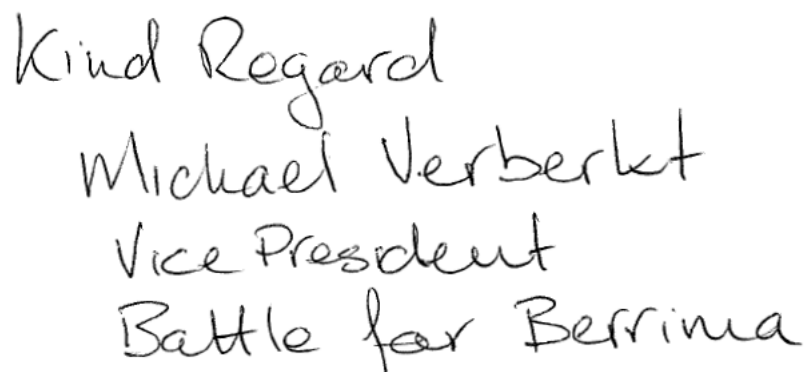 Kind Regard
Michael Verberkt
Vice President
Battle for Berrima